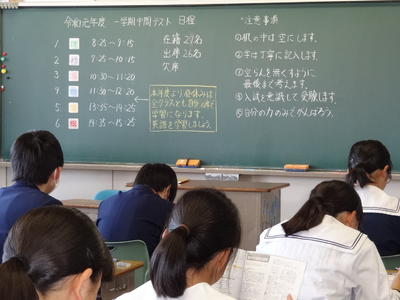 令和元年度 一学期中間テスト 日程
1 8:25〜9:15
2 9:25〜10:15
3 10:30〜11:20
4 11:30〜12:20
5 13:35〜14:25
6 14:35〜15:25
在籍 29名
出席 26名
欠席
本年度より昼休みは
全クラスとも自分の席で
学習になります。
英語を学習しましょう。
*注意事項
①机の中は空にします。
②字は丁寧に記入します。
③空らんを無くすように
最後まで考えます。
④入試を意識して受験します。
⑤自分の力のみでがんばろう。